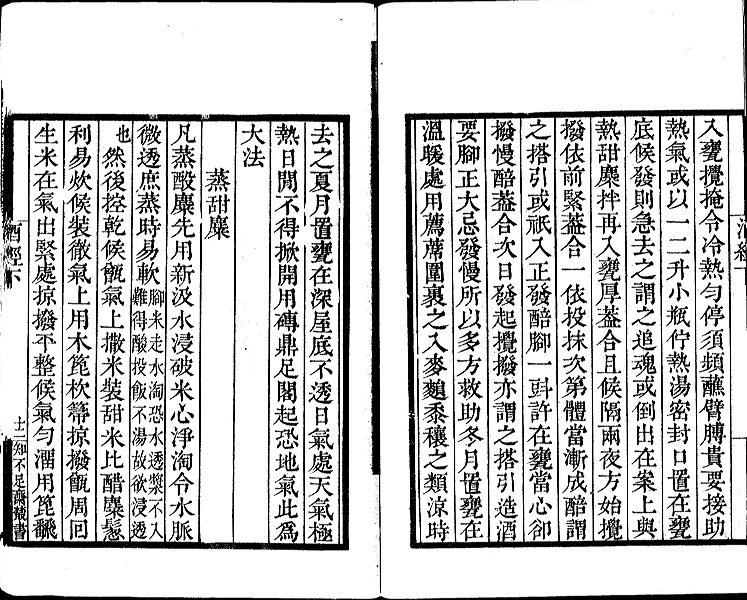 入甕攪掩令冷熱勻停須頻蘸臂膊貴要接助
熱氣或以一二升小瓶佇熱湯密封口置在甕
底候發則急去之謂之追魂或倒出在案上與
熱甜麋拌再入甕厚蓋合且候隔兩夜方始攪
撥依前緊蓋合一依投抹次第體當漸成醅謂
之搭引或祇入正發醅腳一㪷許在甕當心卻
撥慢醅蓋合次日發起攪撥亦謂之搭引造酒
要腳正大忌發慢所以多方救助冬月置甕在
溫暖處用薦蓆圍裹之入麥䴬黍穰之類涼時
去之夏月置甕在深屋底不透日氣處天氣極
熱日閒不得掀開用磚鼎足閣起恐地氣此爲
大法
蒸甜麋
凡蒸酘麋先用新汲水浸破米心淨淘令水脈
微透庶蒸時易軟腳米走水淘恐水透漿不入
難得酸投飯不湯故欲浸透
也然後控乾候甑氣上撒米裝甜米比醋麋鬆
利易炊候裝徹氣上用木篦杴箒掠撥甑周回
生米在氣出緊處掠撥平整候氣勻溜用篦飜
酒經下
士二知不足齋叢書